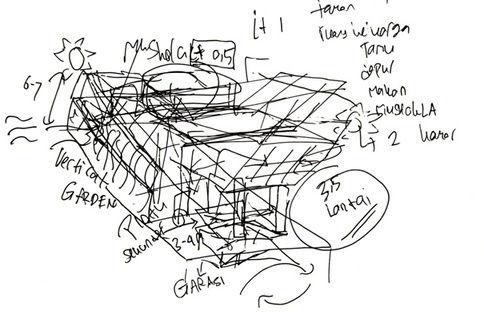 Lt 1
taman
ruang keluarga
Tamu
dapur
Makan
MUSHOLLA
Lt 2 kamar
MUSHOLLA Lt 0,5
6-7
Vertical
GARDEN
3,5
Lantai
GARASI